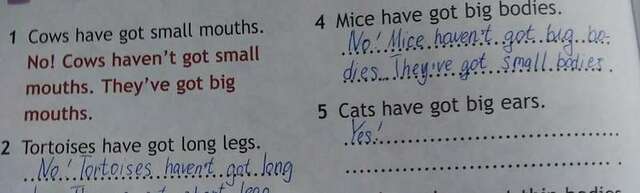 1 Cows have got small mouths.
No! Cows haven't got small
mouths. They've got big
mouths.
2 Tortoises have got long legs.
No! Tortoises haven't got long
4 Mice have got big bodies.
No! Mice haven't got big bo-
dies. They've got small bodies.
5 Cats have got big ears.
Yes!